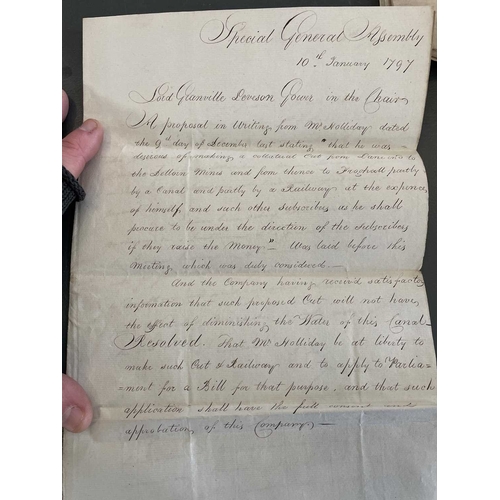 Special General Assembly
10th January 1797
Lord Glanville Leveson Gower in the Chair
A proposal in Writing from Mr Holliday dated
the 9th day of December last stating "that he was
desirous of making a colateral Cut from
to
the Mines and from thence to Froghall partly
by a Canal and partly by a Railway at the expence
of himself, and such other Subscribers as he shall
procure to be under the direction of the Subscribers
if they raise the Money" – Was laid before this
Meeting which was duly considered. –
And the Company having received satisfactory
information that such proposed Cut will not have
the effect of diminishing the Water of this Canal
Resolved. That Mr Holliday be at liberty to
make such Cut & Railway and to apply to Parlia=
=ment for a Bill for that purpose, and that such
application shall have the full consent and
approbation of this Company –